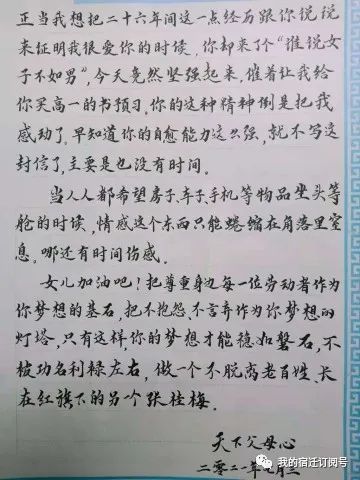 正当我想把二十六年间这一点经历跟你说说
来证明我很爱你的时候，你却来了个“谁说女
子不如男”，今天竟然坚强起来，催着让我给
你买高一的书预习。你的这种精神倒是把我
感动了，早知道你的自愈能力这么强，就不写这
封信了，主要是也没有时间。
当人人都希望房子、车子、手机等物品坐头等
舱的时候，情感这个东西只能蜷缩在角落里窒
息。哪还有时间伤感。
女儿加油吧！把尊重身边每一位劳动者作为
你梦想的基石，把不抱怨、不言弃作为你梦想的
灯塔，只有这样你的梦想才能稳如磐石，不
被功名利禄左右，做一个不脱离老百姓、长
在红旗下的另个张桂梅。
天下父母心
二零二一年
我的宿迁订阅号